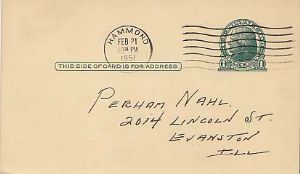 HAMMOND
FEB 21
PM
1951
THIS SIDE OF CARD IS FOR ADDRESS
PERHAM NAHL.
2014 LINCOLN ST.
EVANSTON
ILL